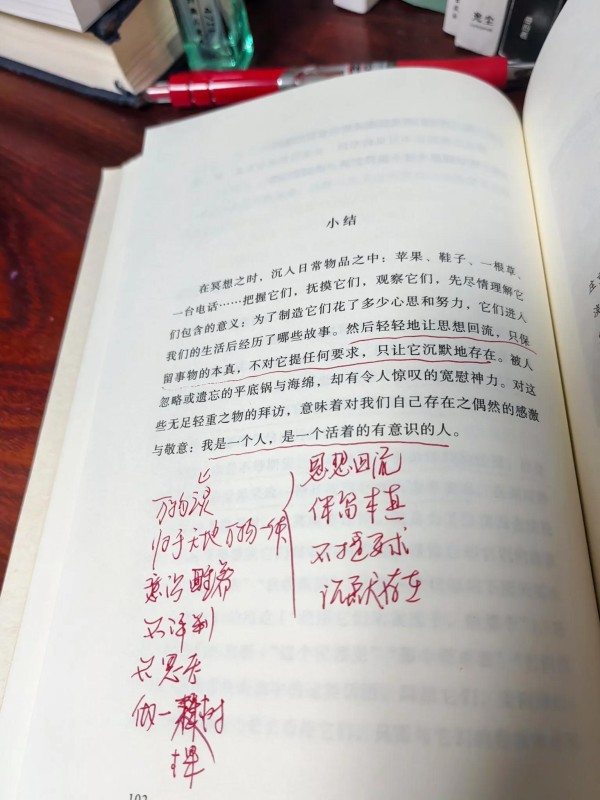 小结
在冥想之时，沉入日常物品之中：苹果、鞋子、一根草、
一台电话……把握它们，抚摸它们，观察它们，先尽情理解它
们包含的意义：为了制造它们花了多少心思和努力，它们进入
我们的生活后经历了哪些故事。然后轻轻地让思想回流，只保
留事物的本真，不对它提任何要求，只让它沉默地存在。被人
忽略或遗忘的平底锅与海绵，却有令人惊叹的宽慰神力。对这
些无足轻重之物的拜访，意味着对我们自己存在之偶然的感激
与敬意：我是一个人，是一个活着的有意识的人。
万物灵
归于天地万物一体
意识
不评判
只思无
做一棵树
思想回流
保留本真
不提要求
沉默存在
102